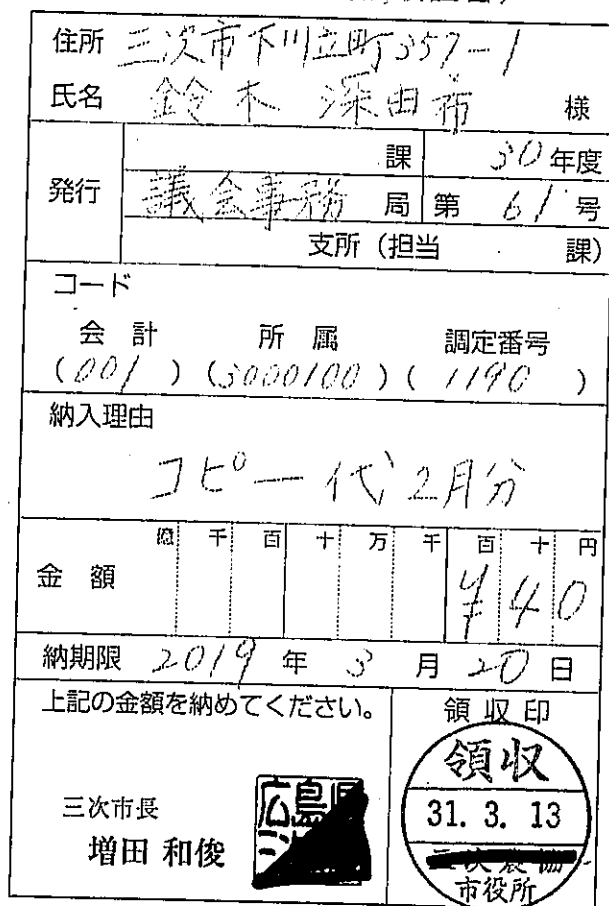 住所 三次市下川立町357-1
氏名 鈴木 深由希 様
課 30年度
発行 議会事務局 第 61 号
支所(担当 課)
コード
会計 所属 調定番号
(001) (5000100) (1190)
納入理由
コピー代2月分
億 千 百 十 万 千 百 十 円
金額 ¥40
納期限 2019年3月20日
上記の金額を納めてください。
領収印
領収
31. 3. 13
市役所
三次市長
増田 和俊
広島県